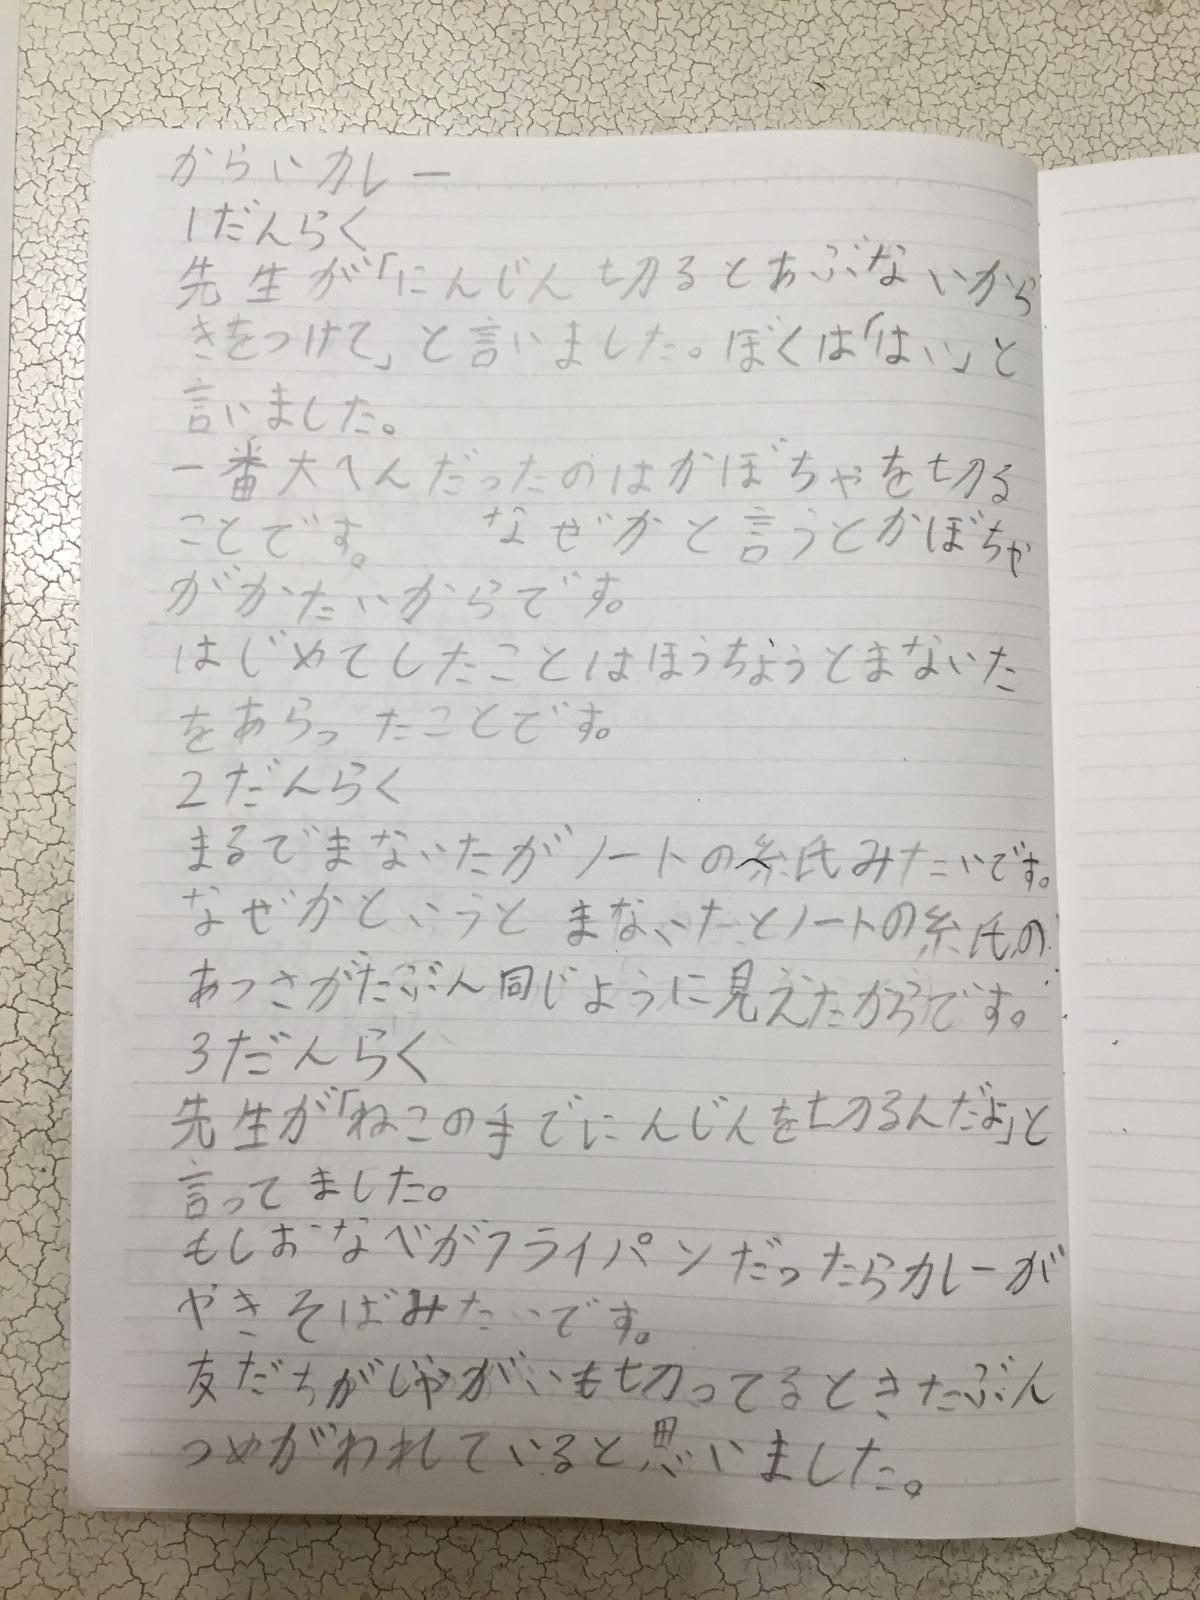 からいカレー
1だんらく
先生が「にんじん切るとあぶないから
きをつけて」と言いました。ぼくは「はい」と
言いました。
一番大へんだったのはかぼちゃを切る
ことです。 なぜかと言うとかぼちゃ
がかたいからです。
はじめてしたことはほうちょうとまないた
をあらったことです。
2だんらく
まるでまないたがノートの紙みたいです。
なぜかというと まないたとノートの紙の
あつさがたぶん同じように見えたからです。
3だんらく
先生が「ねこの手でにんじんを切るんだよ」と
言ってました。
もしおなべがフライパンだったらカレーが
やきそばみたいです。
友だちがじゃがいも切ってるときたぶん
つめがわれていると思いました。